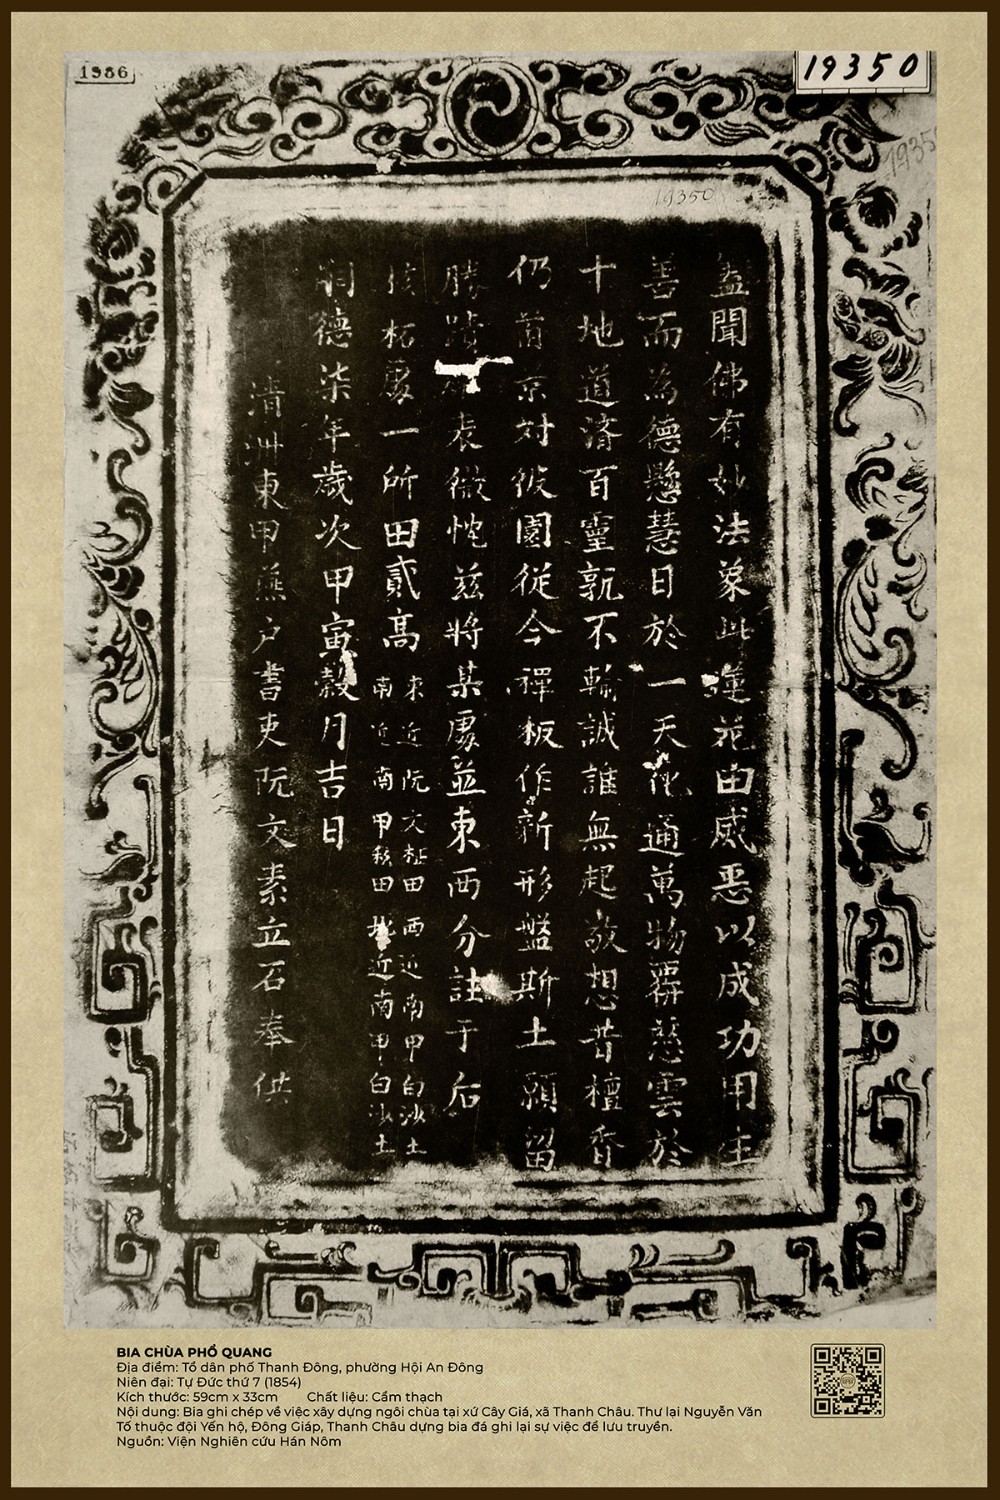 1986
19350
1935
19350
盍聞佛有妙法象此蓮花由感惡以成功用主
善而為德懸慧日於一天化通萬物霹慈雲於
十地道済百靈孰不輸誠誰無起敬想昔檀香
仍京対彼園從今禪板作新形盤斯土願留
勝蹟表微忱茲將某處並東西分註于右
核柘處一所田貳高
東近阮文田西近南甲白沙土
南近南甲秋田北近南甲白沙土
嗣德柒年歲次甲寅穀月吉日
清洲東甲燕户書吏阮文素立石奉供
BIA CHÙA PHỔ QUANG
Địa điểm: Tổ dân phố Thanh Đông, phường Hội An Đông
Niên đại: Tự Đức thứ 7 (1854)
Kích thước: 59cm x 33cm Chất liệu: Cẩm thạch
Nội dung: Bia ghi chép về việc xây dựng ngôi chùa tại xứ Cây Giá, xã Thanh Châu. Thư lại Nguyễn Văn
Tố thuộc đội Yến hộ, Đông Giáp, Thanh Châu dựng bia đá ghi lại sự việc để lưu truyền.
Nguồn: Viện Nghiên cứu Hán Nôm